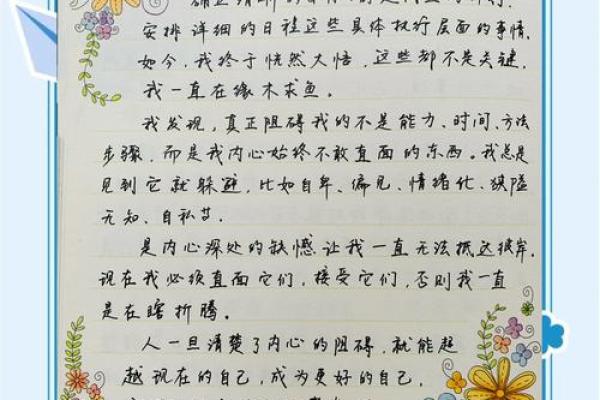 安排详细的日程这些具体执行层面的事情.
如今,我终于恍然大悟,这些都不是关键.
我一直在缘木求鱼。
我发现,真正阻碍我的不是能力、时间、方法
步骤,而是我内心始终不敢直面的东西。我总是
见到它就躲避,比如自卑、偏见、情绪化、狭隘
无知、自私等.
是内心深处的缺憾让我一直无法抵达彼岸.
现在我必须直面它们,接受它们,否则我一直
是在瞎折腾。
人一旦清楚了内心的阻碍,就能超
越现在的自己,成为更好的自己.